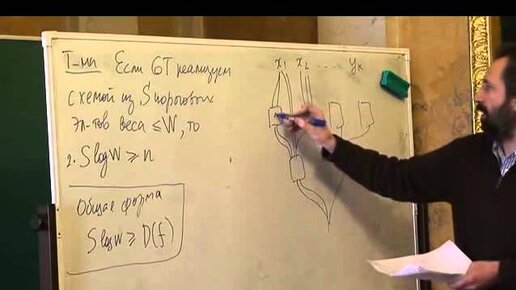 Т-ма Если GT реализуем
схемой из S пороговых
эл-тов веса ≤W, то
2. S log W ≥ n
Общая форма
S log W ≥ D(f)
x₁ x₂ ... yₖ